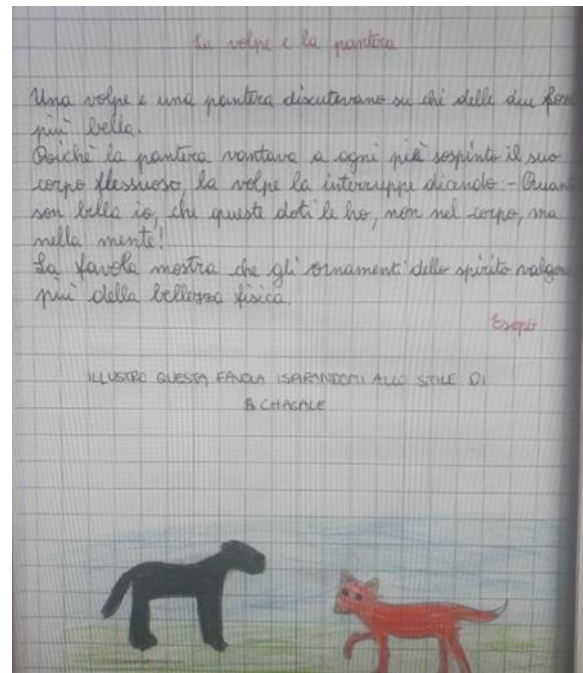 La volpe e la pantera
Una volpe e una pantera discutevano su chi delle due foss
più bella.
Poichè la pantera vantava a ogni piè sospinto il suo
corpo flessuoso, la volpe la interruppe dicendo: - Quant
son bella io, che queste doti le ho, non nel corpo, ma
nella mente!
La favola mostra che gli ornamenti dello spirito valgon
più della bellezza fisica.
Esopo
ILLUSTRO QUESTA FAVOLA ISPIRANDOMI ALLO STILE DI
CHAGALE